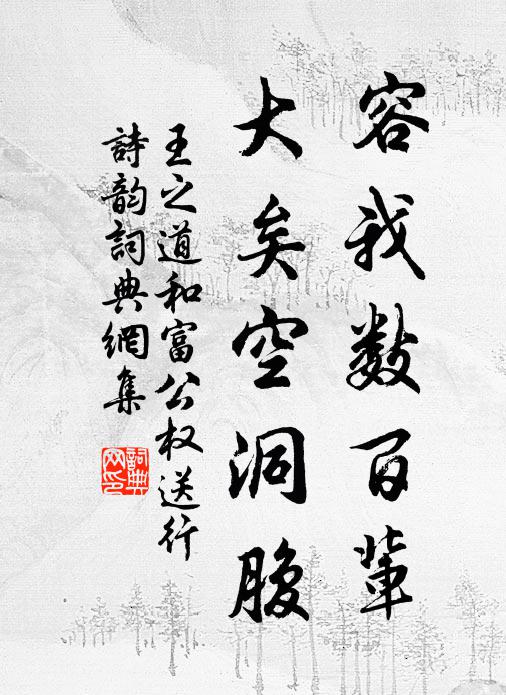 容我数百辈
大矣空洞腹
王之道和富公权送行
詩韵詞典網集
詞典网印